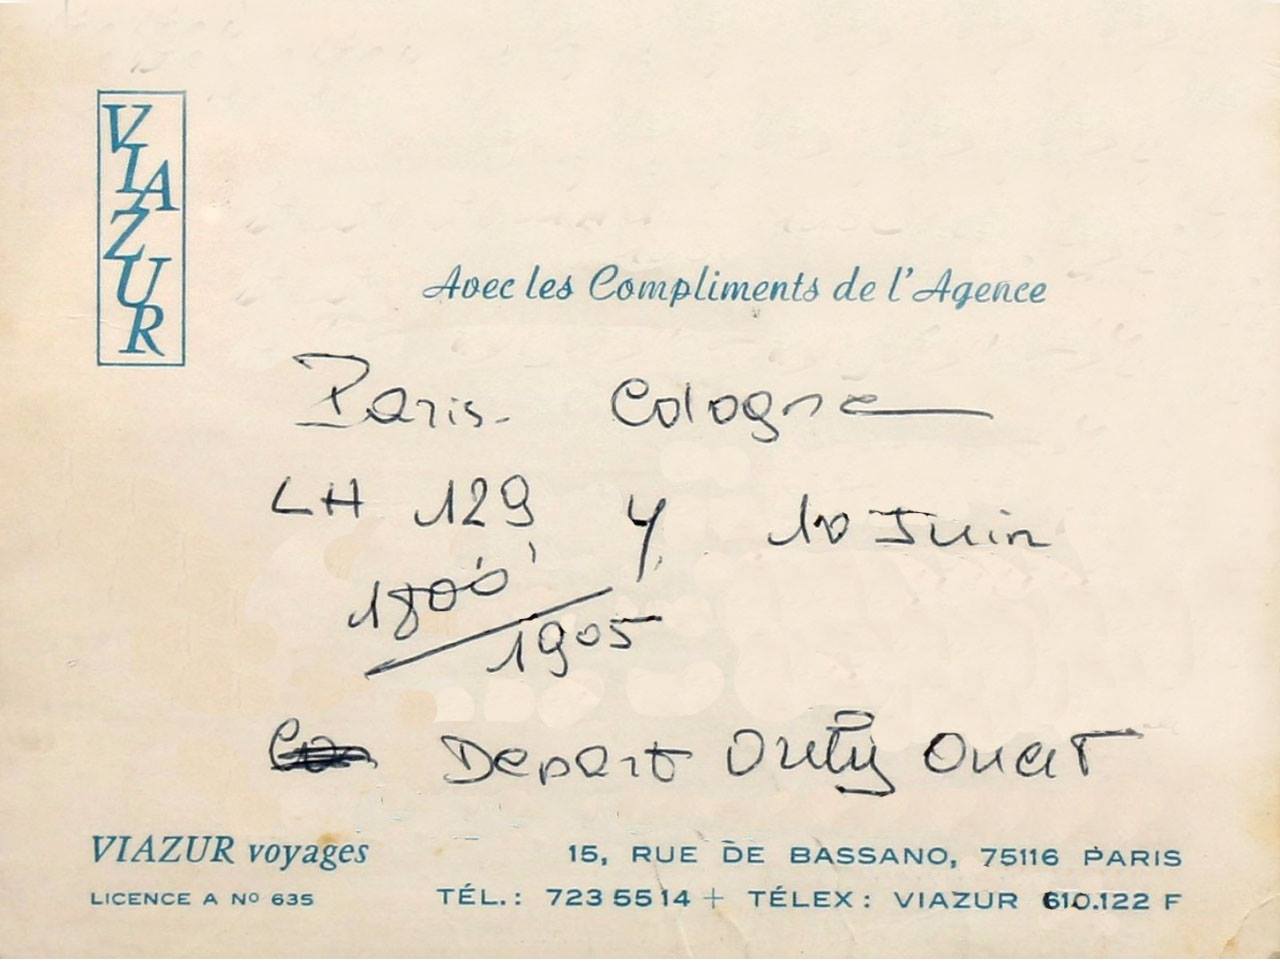 VIAZUR
Avec les Compliments de l'Agence
Paris- Cologne
LH 129 Y 10 Juin
1800
1905
Depart Orly Ouest
VIAZUR voyages
15, RUE DE BASSANO, 75116 PARIS
LICENCE A Nº 635
TÉL.: 723 55 14 + TÉLEX: VIAZUR 610.122 F